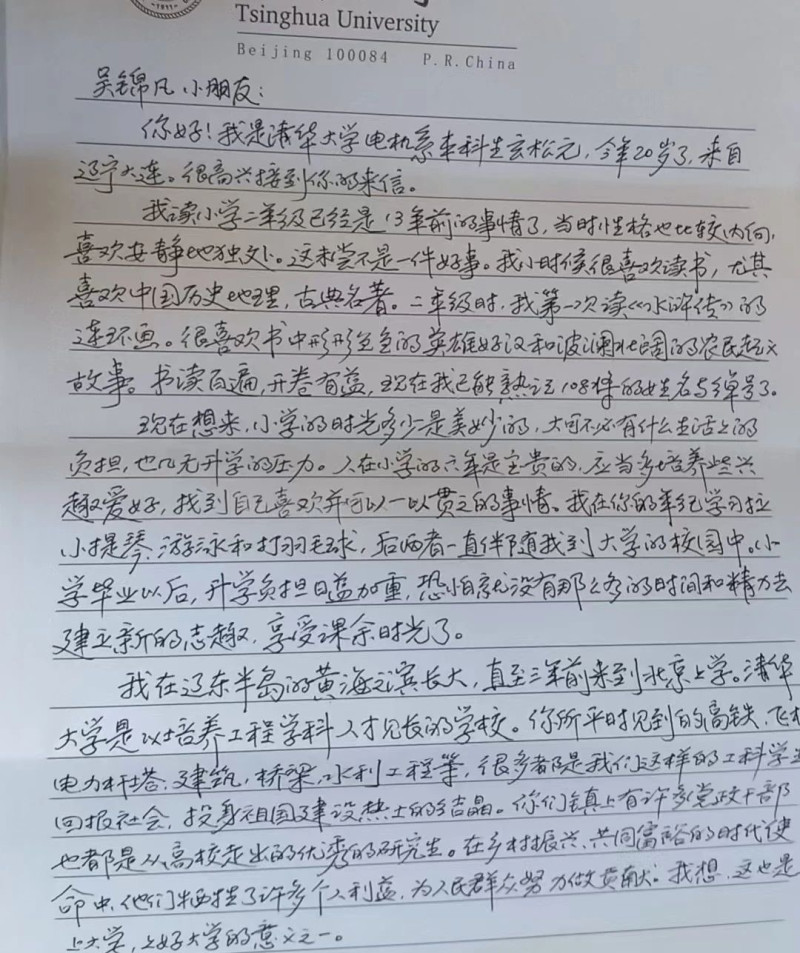 1911
Tsinghua University
Beijing 100084 P.R.China
吴锦凡小朋友：
你好！我是清华大学电机系本科生玄松元，今年20岁了，来自
辽宁大连。很高兴接到你的来信。
我读小学二年级已经是13年前的事情了，当时性格也比较内向，
喜欢安静地独处。这未尝不是一件好事。我小时候很喜欢读书，尤其
喜欢中国历史地理，古典名著。二年级时，我第一次读《水浒传》的
连环画。很喜欢书中形形色色的英雄好汉和波澜壮阔的农民起义
故事。书读百遍，开卷有益，现在我已能熟记108将的姓名与绰号了。
现在想来，小学的时光多少是美妙的，大可不必有什么生活上的
负担，也几无升学的压力。人在小学的六年是宝贵的，应当多培养些兴
趣爱好，找到自己喜欢并可以一以贯之的事情。我在你的年纪学习拉
小提琴、游泳和打羽毛球，后两者一直伴随我到大学的校园中。小
学毕业以后，升学负担日益加重，恐怕就没有那么多的时间和精力去
建立新的志趣，享受课余时光了。
我在辽东半岛的黄海之滨长大，直至三年前来到北京上学。清华
大学是以培养工程学科人才见长的学校。你所平时见到的高铁、飞机
电力杆塔、建筑，桥梁，水利工程等，很多都是我们这样的工科学生
回报社会，投身祖国建设热土的结晶。你们镇上有许多党政干部
也都是从高校走出的优秀的研究生。在乡村振兴、共同富裕的时代使
命中，他们牺牲了许多个人利益，为人民群众努力做贡献。我想，这也是
上大学，上好大学的意义之一。